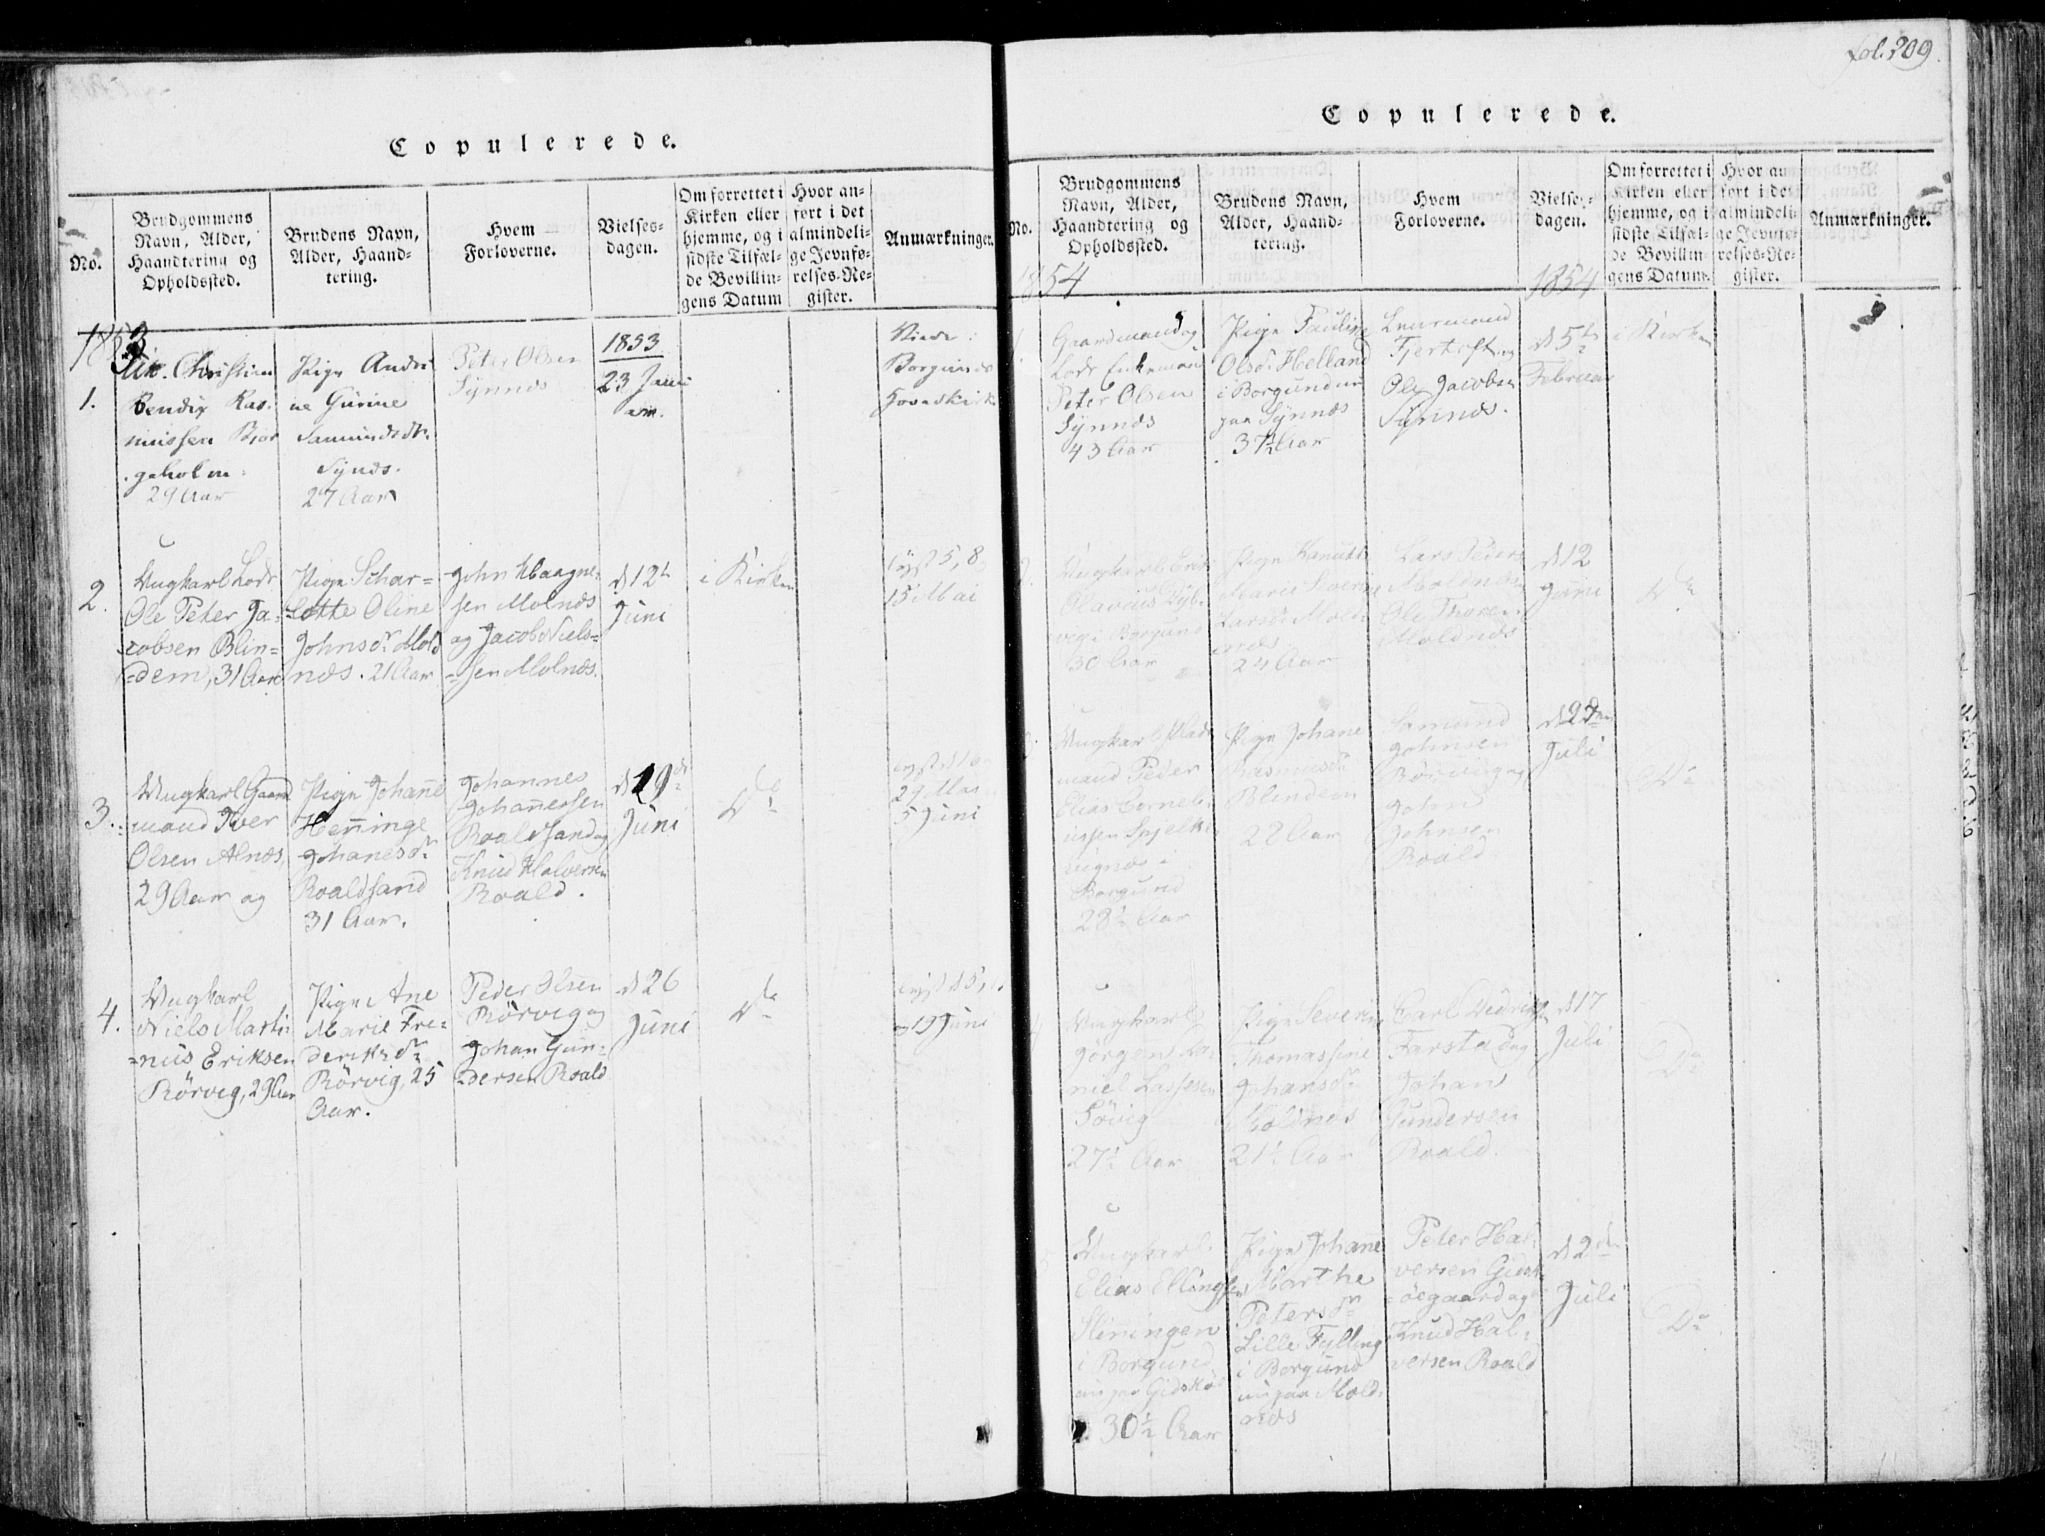 fol. 209.
Copulerede.
No.
Brudgommens
Navn, Alder,
Haandtering og
Opholdssted.
Brudens Navn,
Alder, Haand-
tering.
Hvem
Forloverne.
Vielses-
dagen.
Om forrettet i
Kirken eller
hjemme, og i
sidste Tilfæl-
de Bevillin-
gens Datum
Hvor an-
ført i det
almindeli-
ge Jevnfø-
relses-Re-
gister.
Anmærkninger.
1853
1.
Christian
Bendix Ras-
mussen
29 Aar
Pige Andri
ne Gurine
Synds.
27 Aar
Peter Olsen
Synnes
1853
23 Janu
Borgunds
Hovedkirk
2.
Ungkarl
Ole Peter Ja-
cobsen Blin-
dem, 31 Aar
Pige Schar-
lotte Oline
Johnsdr Mold
næs. 21 Aar
John Haagne-
sen Molnæs
og Jacob Niels-
sen Molnæs.
d 12te
Juni
i Kirken
lyst 5, 8,
15 Mai
3.
Ungkarl Gaard
mand Iver
Olsen Alnæs,
29 Aar og
Pige Johanne
Henninge
Johanesdr
Roaldsand
31 Aar.
Johannes
Johannessen
Roaldsand og
Knud Halversen
Roald.
d 19de
Juni
Do
29 Mai
5 Juni
4.
Ungkarl
Niels Marti-
nus Eriksen
Rörvig, 29 Aar
Pige Ane
Marie Fre-
deriksdr
Rörvig, 25
Aar.
Peder Olsen
Rörvig og
Johan Gun-
dersen Roald
d 26
Juni
Do
og 19 Juni
Copulerede.
No.
Brudgommens
Navn, Alder,
Haandtering og
Opholdssted.
Brudens Navn,
Alder, Haand-
tering.
Hvem
Forloverne.
Vielses-
dagen.
Om forrettet i
Kirken eller
hjemme, og i
sidste Tilfæl-
de Bevillin-
gens Datum.
Hvor an-
ført i det
almindeli-
ge Jevnfø-
relses-Re-
gister.
Anmærkninger.
1854
1854
1.
Gaardmand og
Lods Enkemand
Peter Olsen
Synnæs
43 Aar
Pige Pauline
Olsdr Helland
i Borgund nu
paa Synnæs
37½ Aar
Lensmand
Fjertoft og
Ole Jacobsen
Synnæs.
d 5te
Februar
i Kirken
2.
Ungkarl Erik
Olavius
i Borgund
30 Aar
Pige
Marie
Larsdr Mold
næs
24 Aar
Lars Peders
Moldnæs
Ole Thoren
Moldnæs
d 12
Juni
Do
Ungkarl
mand Peder
Elias Corneli-
ussen Spjelke
i
Borgund
28½ Aar
Pige Johane
Rasmusdr
Blindem
22 Aar
Johnsen
Rörvig og
John
Johnsen
Roald
Juli
Do
Ungkarl
Jörgen Da-
niel Lassesen
Sövig
27½ Aar
Pige Severine
Thomassine
Johansdr
Moldnæs
21½ Aar
Carl
Farstad og
Johan
Gundersen
Roald.
d 17
Juli
Do
Ungkarl
Elias Ellingsen
Slinningen
i Borgund
nu paa Gidskö
30½ Aar
Pige Johane
Marthe
Petersdr
Lille Fylling
i Borgund
nu paa Mold-
næs
Peter Hal-
versen Gidsk-
öegaard og
Knud Hal-
versen Roald
d 2den
Juli
Do